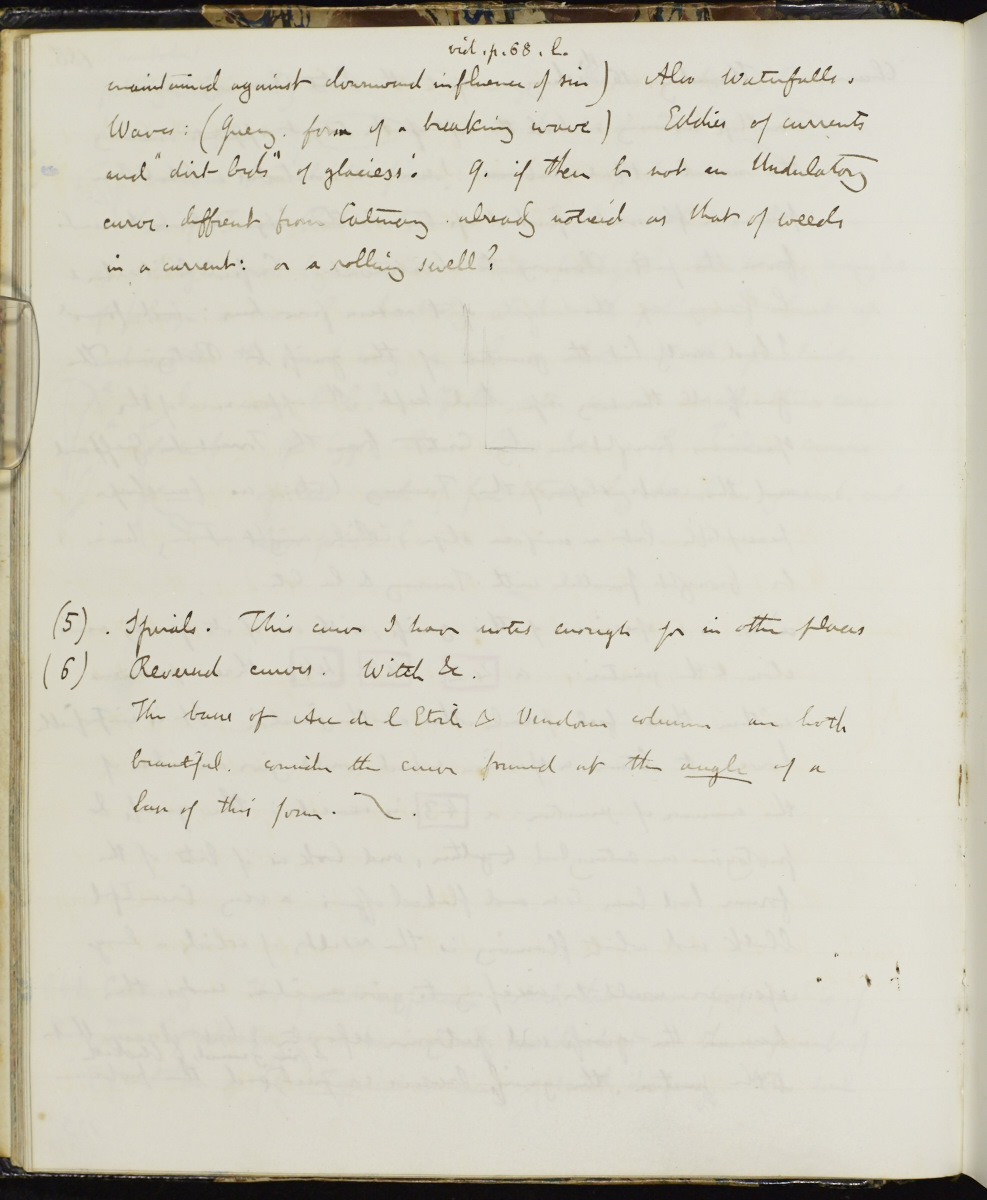 vid. p. 68. l.
maintained against downward influence of sin) Also Waterfalls.
Waves: (Query. form of a breaking wave) Eddies of currents
and "dirt beds" of glaciers: Q. if there be not an Undulatory
curve. different from Catenary. already noticed as that of weeds
in a current: or a rolling swell?
(5). Spirals. This curve I have notes enough for in other places
(6) Reversed curves. Witch &c.
The base of Arc de l Etoile & Vendome column are both
beautiful. consider the curve formed at the angle of a
base of this form.